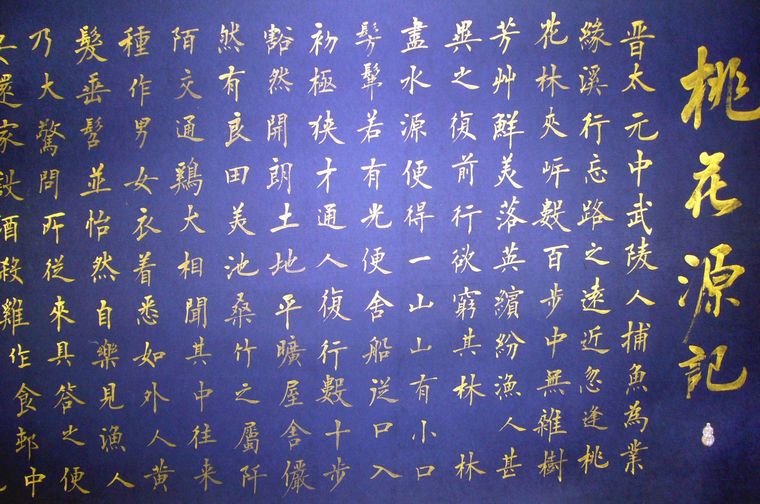 桃花源記
晋太元中武陵人捕魚為業
緣溪行忘路之遠近忽逢桃
花林夾岸數百步中無雜樹
芳艸鮮美落英繽紛漁人甚
異之復前行欲窮其林 林
盡水源便得一山山有小口
髣髴若有光便舍船從口入
初極狹才通人復行數十步
豁然開朗土地平曠屋舍儼
然有良田美池桑竹之屬阡
陌交通鷄犬相聞其中往来
種作男女衣着悉如外人黃
髮垂髫並怡然自樂見漁人
乃大驚問所從來具答之便
還家設酒殺雞作食邨中